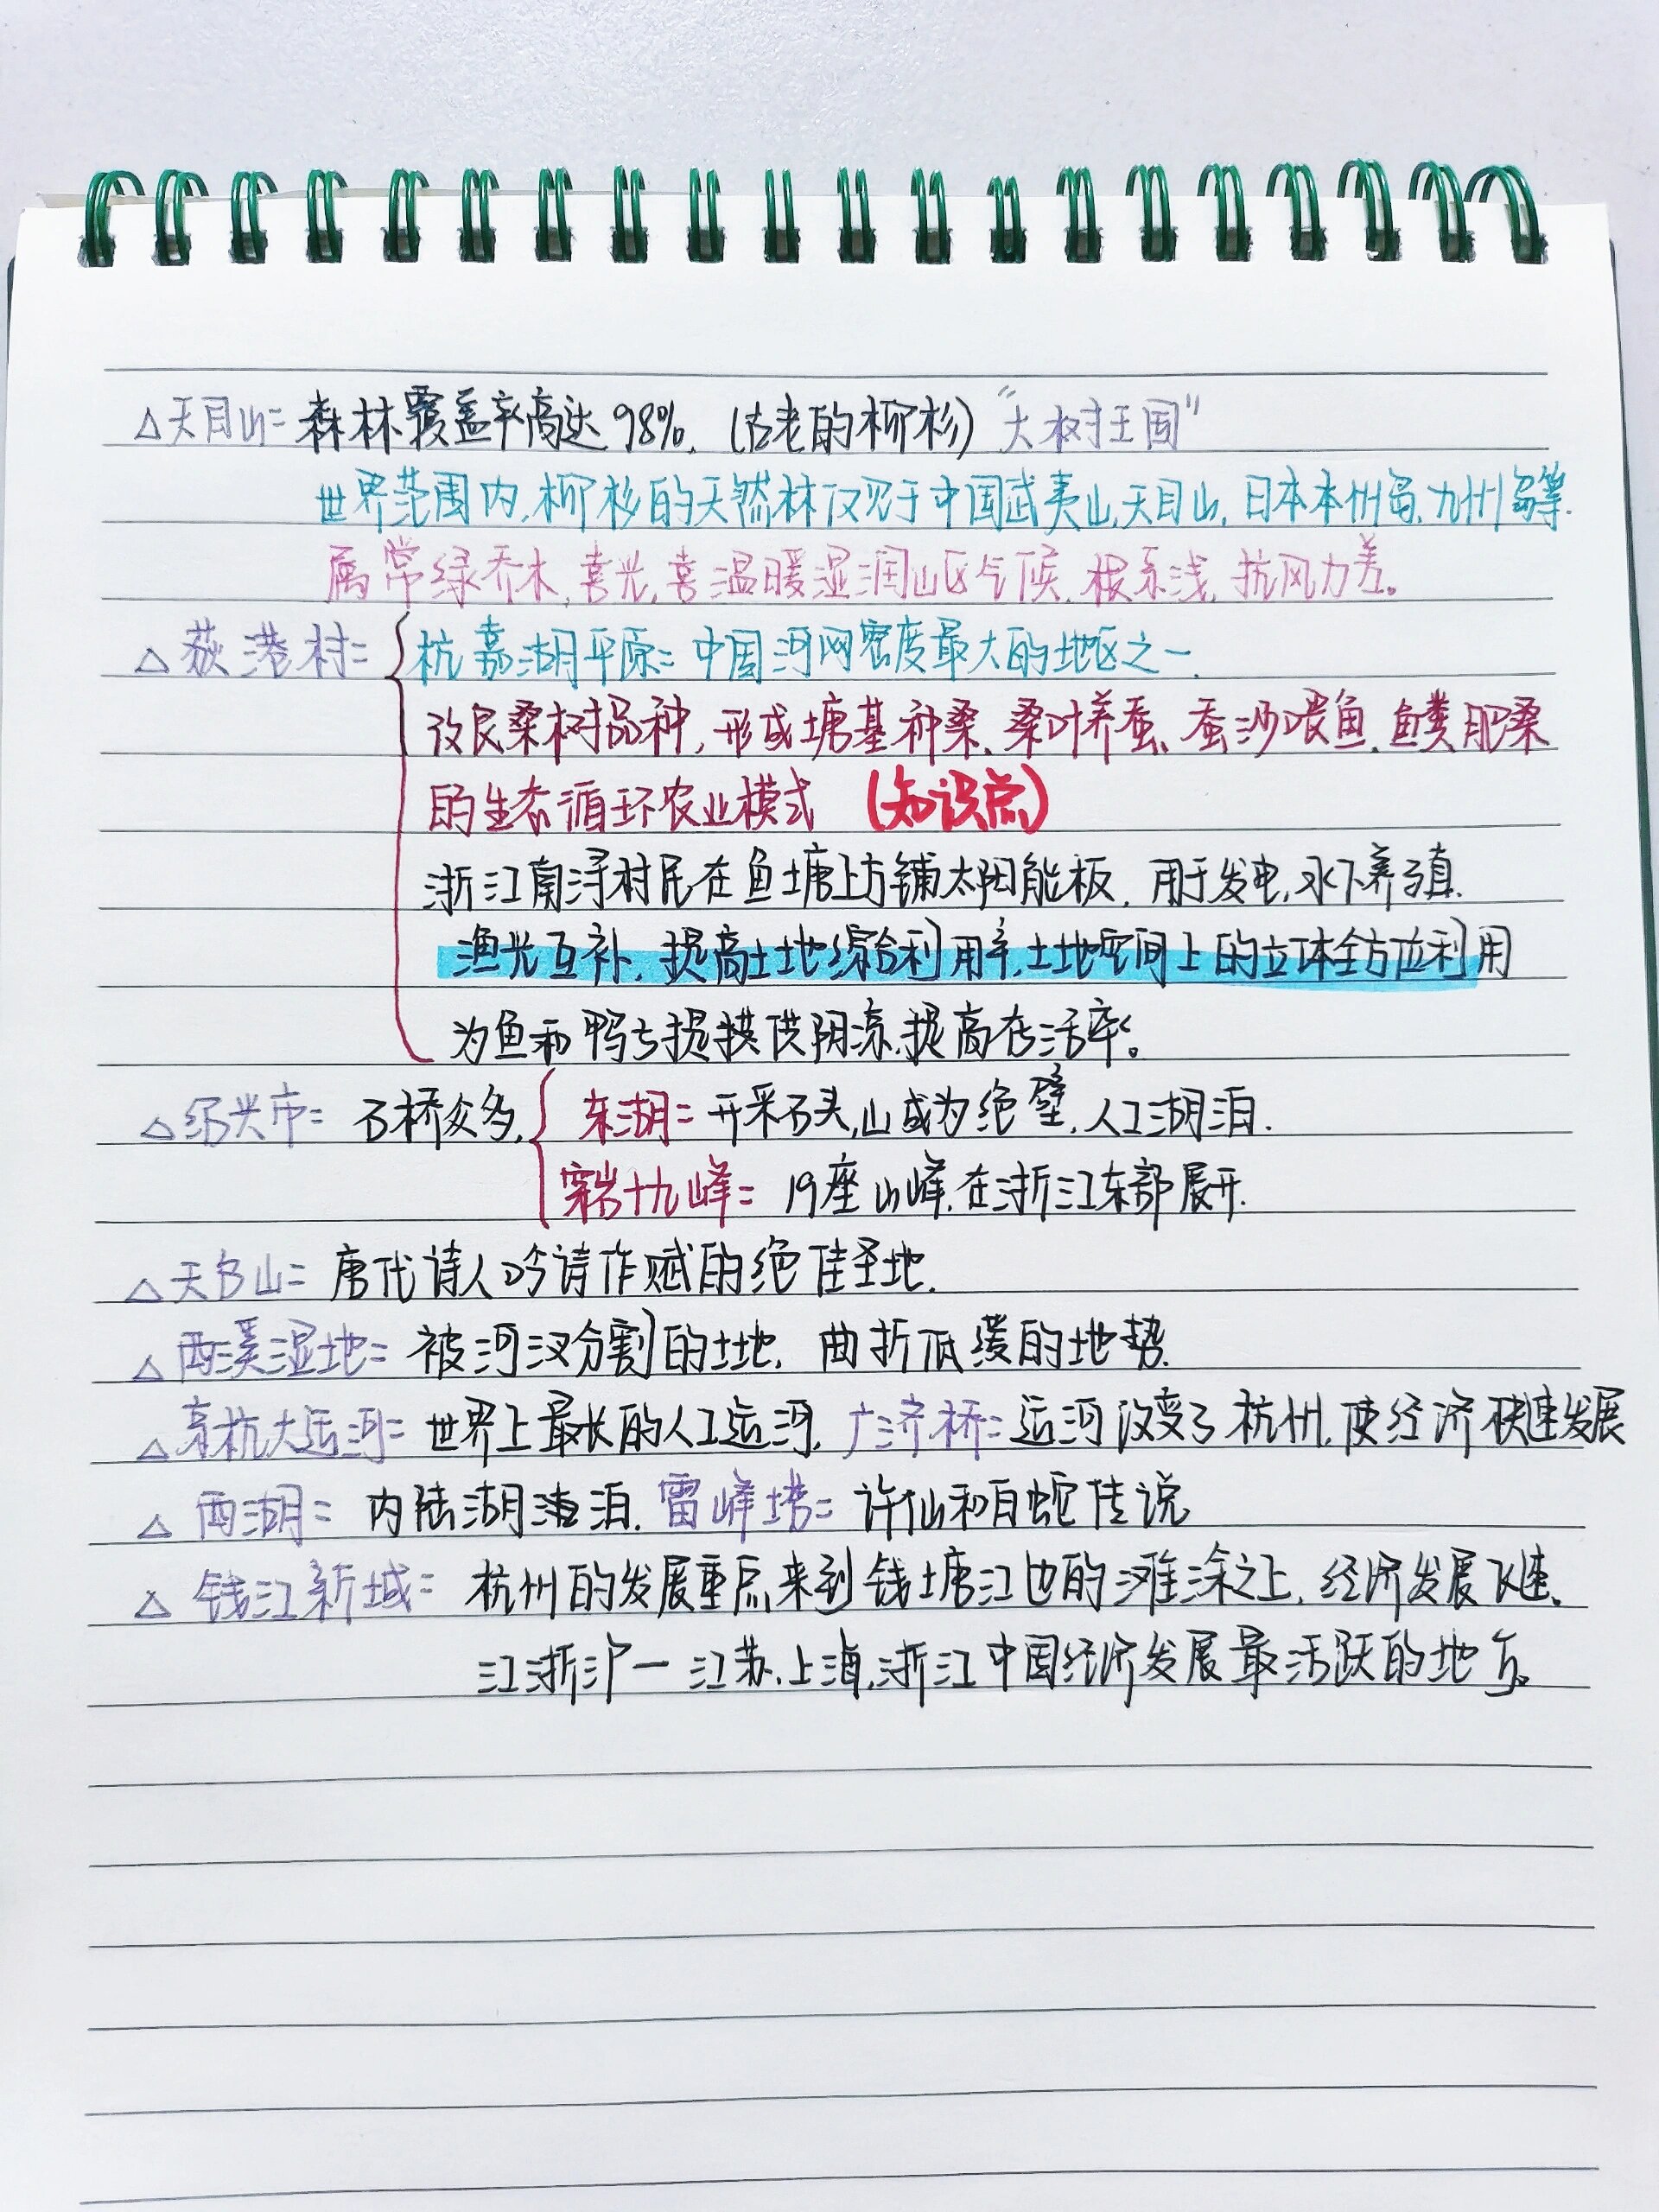 △天目山= 森林覆盖率高达98%. (古老的柳杉) "大树王国"
世界范围内,柳杉的天然林仅见于中国武夷山,天目山, 日本本州岛,九州岛等.
属常绿乔木,喜光,喜温暖湿润山区气候,根系浅,抗风力差。
△荻港村= 杭嘉湖平原= 中国河网密度最大的地区之一.
改良桑树品种,形成塘基种桑、桑叶养蚕、蚕沙喂鱼、鱼粪肥桑
的生态循环农业模式 (知识点)
浙江南浔村民在鱼塘上方铺太阳能板, 用于发电,水下养殖.
渔光互补,提高土地综合利用率,土地空间上的立体全方位利用
为鱼和鸭与提供阴凉,提高存活率。
△绍兴市= 石桥众多, 东湖= 开采石头,山成为绝壁,人工湖泊.
穿岩十九峰= 19座山峰,在浙江东部展开.
△天台山= 唐代诗人吟请作赋的绝佳圣地.
△西溪湿地= 被河汊分割的土地, 曲折低缓的地势.
△京杭大运河= 世界上最长的人工运河, 广济桥= 运河改变了杭州,使经济快速发展
△西湖= 内陆湖泊. 雷峰塔= 许仙和白蛇传说
△钱江新城= 杭州的发展重点来到钱塘江边的滩涂之上, 经济发展飞速。
江浙沪一 江苏,上海,浙江 中国经济发展最活跃的地方。